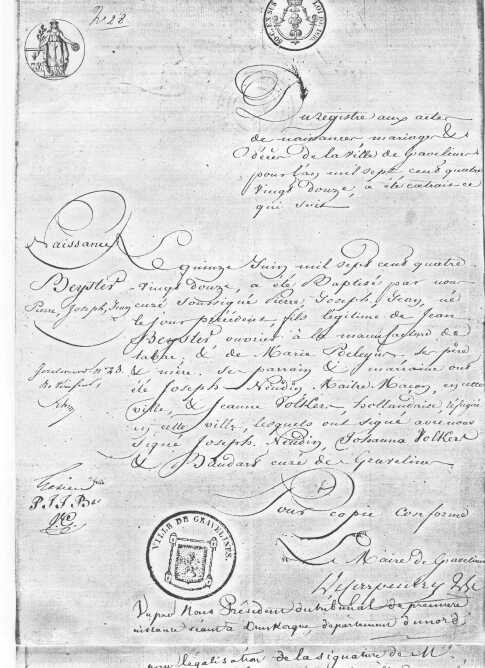 N° 28.
Du registre aux actes
de naissances mariages &
décès de la ville de Gravelines
pour l'an mil sept cent quatre
vingt douze, a été extrait ce
qui suit
Naissance
Beyster
Pierre, Joseph, Jean
Le quinze Juin mil sept cent quatre
-vingt douze, a été Baptisé par nous
curé soussigné Pierre, Joseph, Jean, né
le jour précédent, fils légitime de Jean
Beyster ouvrier à la manufacture de
tabac, & de Marie
& mère. ses parrain & marraine ont
été Joseph Naudin, Maitre Maçon, en cette
ville, & Jeanne Volker, hollandaise, réfugiée
en cette ville, lesquels ont signé avec nous
signé Joseph Naudin, Johanna Volkers
& Baudart curé de Gravelines.
P. J. J. B
Pour copie conforme
Le Maire de Gravelines
VILLE DE GRAVELINES.
Vu par Nous Président du tribunal de première
instance séant à Dunkerque, département du nord,
pour légalisation de la signature de M.